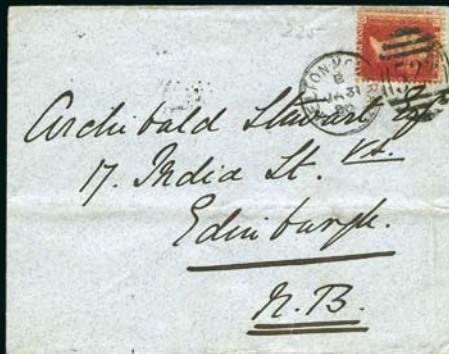 225
ELTON-MOW
B
JA 31
80
Archibald Stewart Esqr
17. India St.
Edinburgh.
N.B.